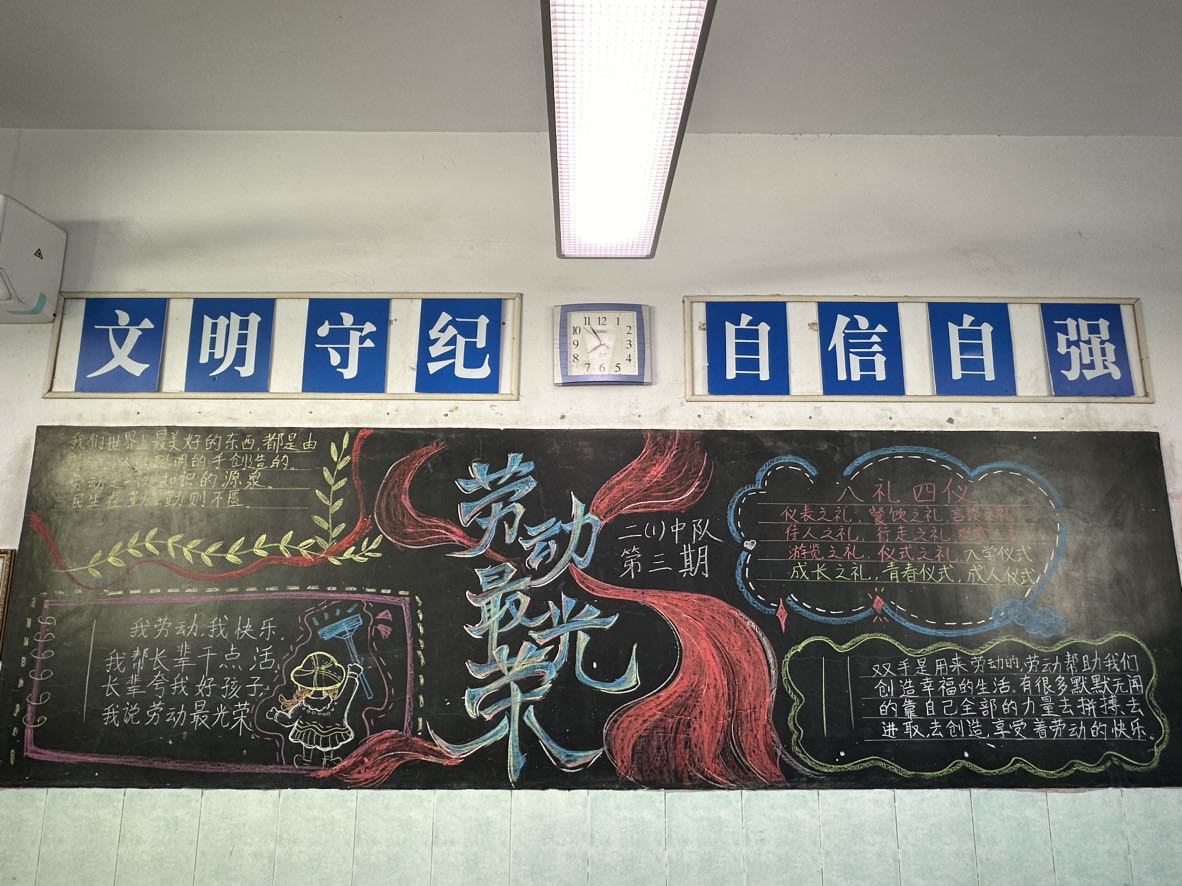 文明守纪
自信自强
11 12 1
10 2
9 3
8 4
7 6 5
我们世界上最美好的东西,都是由
聪明的手创造的。
劳动是 知识的源泉。
民生在勤,勤则不匮.
我劳动,我快乐.
我帮长辈干点活,
长辈夸我好孩子.
我说劳动最光荣
劳动
最光
荣
二(1)中队
第三期
八礼四仪
仪表之礼,餐饮之礼,言谈之礼
待人之礼,行走之礼,观赏之礼
游览之礼,仪式之礼,入学仪式
成长之礼,青春仪式,成人仪式
双手是用来劳动的,劳动帮助我们
创造幸福的生活.有很多默默无闻
的靠自己全部的力量去拼搏,去
进取,去创造,享受着劳动的快乐.